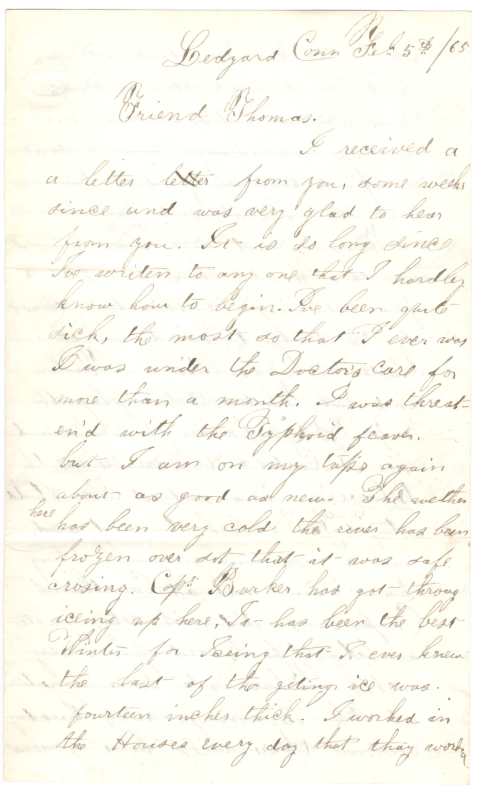 Ledyard Conn Feb. 5th /65
Friend Thomas.
I received a
a letter letter from you, some weeks
since and was very glad to hear
from you. It is so long since
Ive writen to any one that I hardley
know how to begin. I've been quite
sick, the most so that I ever was
I was under the Doctors care for
more than a month. I was threat-
en'd with the Typhoid feaver.
but I am on my taps again
about as good as new. The wether
here
has been very cold the river has been
frozen over sot that it was safe
crosing. Capt Barker has got throug
iceing up here, It has been the best
Winter for Iceing that I ever knew
the last of the geting ice was
fourteen inches thick. I worked in
the Houses every day that thay